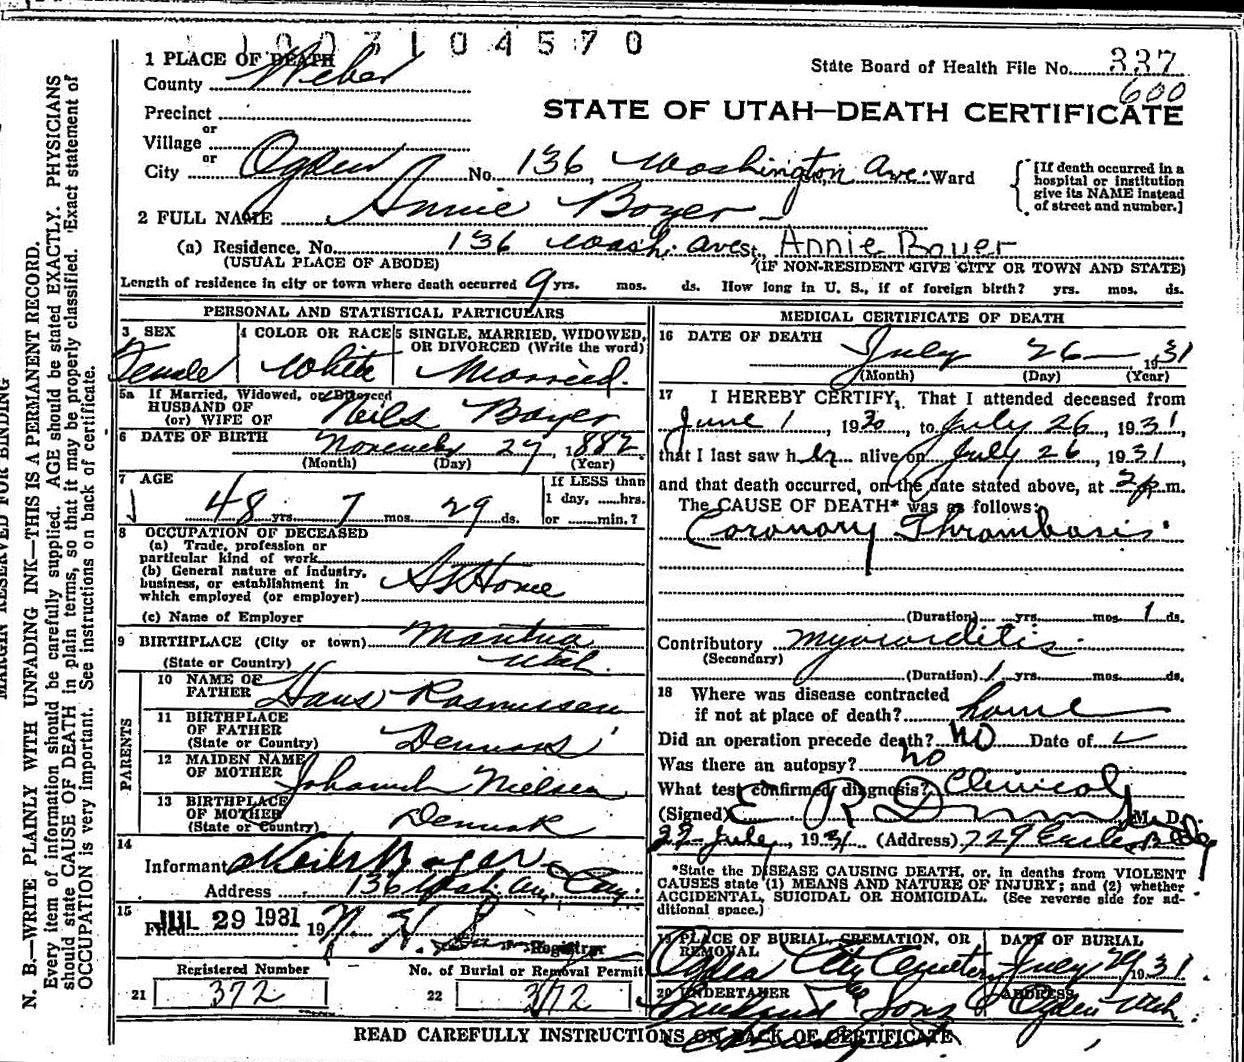 1003104570
1 PLACE OF DEATH
State Board of Health File No. 337
County Weber
600
STATE OF UTAH—DEATH CERTIFICATE
Precinct
or
Village
or
City Ogden No. 136 Washington Ave. Ward
[If death occurred in a hospital or institution give its NAME instead of street and number.]
2 FULL NAME Annie Boyer
(a) Residence. No. 136 Wash. Ave St., Annie Boyer
(USUAL PLACE OF ABODE) (IF NON-RESIDENT GIVE CITY OR TOWN AND STATE)
Length of residence in city or town where death occurred 9 yrs. mos. ds. How long in U. S., if of foreign birth? yrs. mos. ds.
PERSONAL AND STATISTICAL PARTICULARS
3 SEX Female
4 COLOR OR RACE White
5 SINGLE, MARRIED, WIDOWED, OR DIVORCED (Write the word) Married.
5a If Married, Widowed, or Divorced
HUSBAND OF
(or) WIFE OF Neils Boyer
6 DATE OF BIRTH November 27, 1882
(Month) (Day) (Year)
7 AGE
48 yrs. 7 mos. 29 ds.
If LESS than
1 day, ......hrs.
or ......min.?
8 OCCUPATION OF DECEASED
(a) Trade, profession or
particular kind of work
(b) General nature of industry,
business, or establishment in
which employed (or employer) At Home
(c) Name of Employer
9 BIRTHPLACE (City or town) Mantua
(State or Country) Utah.
PARENTS
10 NAME OF FATHER Hans Rasmussen
11 BIRTHPLACE OF FATHER (State or Country) Denmark
12 MAIDEN NAME OF MOTHER Johannah Nielsen
13 BIRTHPLACE OF MOTHER (State or Country) Denmark
14
Informant Neils Boyer
Address 136 Wash. Ave, City.
15
Filed JUL 29 1931 19
Registrar
Registered Number
21 372
No. of Burial or Removal Permit
22 372
MEDICAL CERTIFICATE OF DEATH
16 DATE OF DEATH
July 26 1931
(Month) (Day) (Year)
17 I HEREBY CERTIFY, That I attended deceased from
June 1, 1930, to July 26, 1931,
that I last saw her alive on July 26, 1931,
and that death occurred, on the date stated above, at 2 p.m.
The CAUSE OF DEATH* was as follows:
Coronary Thrombosis
(Duration) yrs. mos. 1 ds.
Contributory Myocarditis
(Secondary)
(Duration) 1 yrs. mos. ds.
18 Where was disease contracted
if not at place of death? home
Did an operation precede death? NO Date of
Was there an autopsy? no
What test confirmed diagnosis? Clinical
(Signed) E. R. M. D.
27 July, 1931 (Address) 729 Eccles Bldg
*State the DISEASE CAUSING DEATH, or, in deaths from VIOLENT
CAUSES state (1) MEANS AND NATURE OF INJURY; and (2) whether
ACCIDENTAL, SUICIDAL OR HOMICIDAL. (See reverse side for ad-
ditional space.)
19 PLACE OF BURIAL, CREMATION, OR REMOVAL
Ogden City Cemetery
DATE OF BURIAL
July 29 1931
20 UNDERTAKER & Sons
ADDRESS
Ogden Utah
READ CAREFULLY INSTRUCTIONS ON BACK OF CERTIFICATE
MARGIN RESERVED FOR BINDING
N. B.—WRITE PLAINLY WITH UNFADING INK—THIS IS A PERMANENT RECORD.
Every item of information should be carefully supplied. AGE should be stated EXACTLY. PHYSICIANS
should state CAUSE OF DEATH in plain terms, so that it may be properly classified. Exact statement of
OCCUPATION is very important. See instructions on back of certificate.